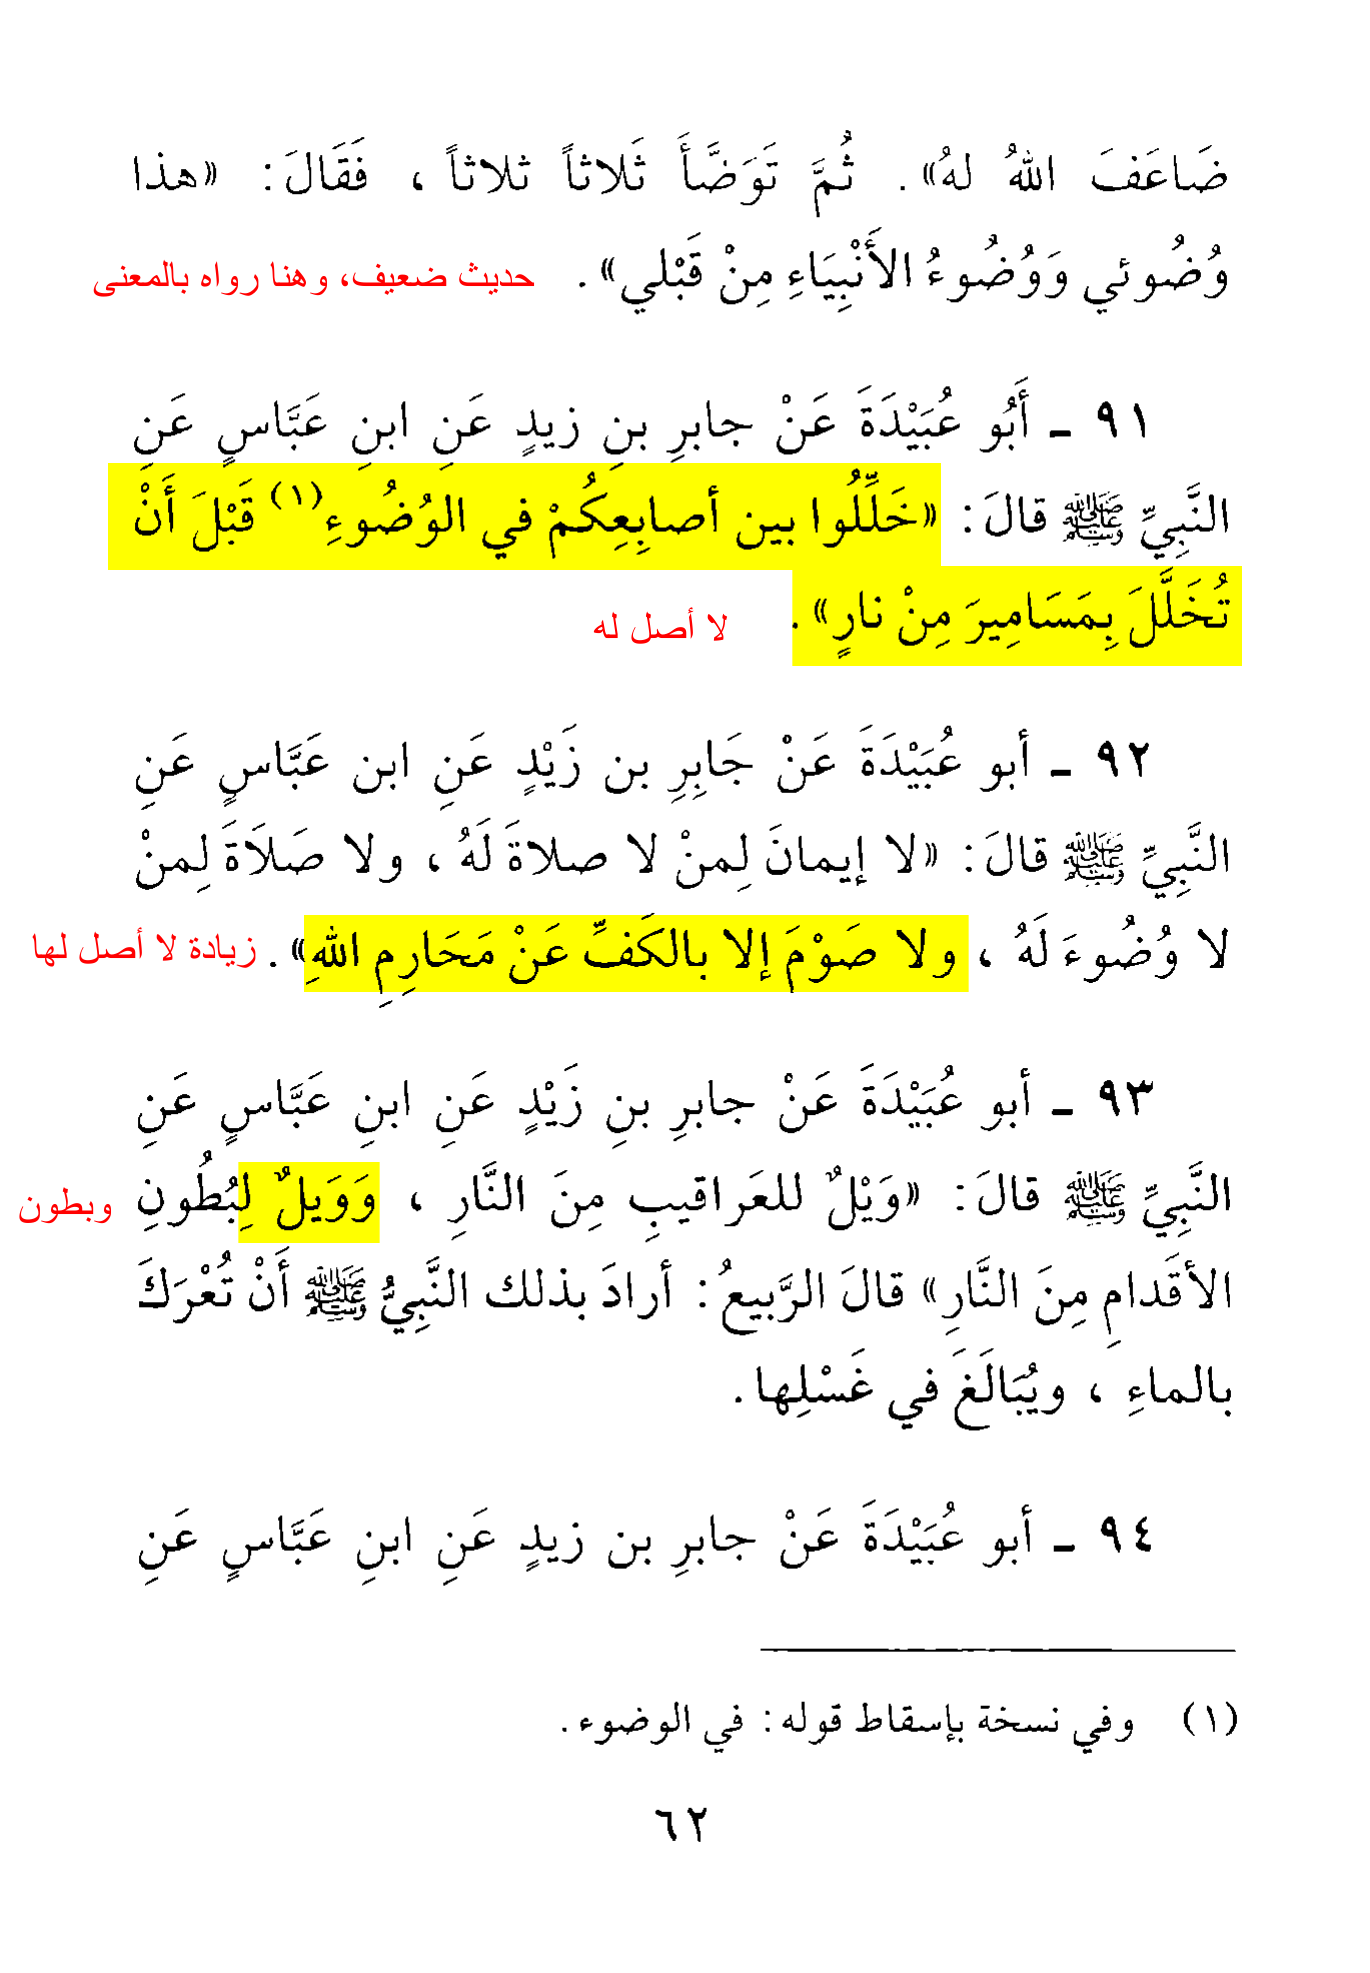 ضَاعَفَ اللهُ لهُ» . ثُمَّ تَوَضَّأَ ثَلاثاً ثلاثاً ، فَقَالَ : «هذا
وُضُوئي وَوُضُوءُ الأَنْبِيَاءِ مِنْ قَبْلي» . حديث ضعيف، وهنا رواه بالمعنى
٩١ ـ أَبُو عُبَيْدَةَ عَنْ جابرِ بنِ زيدٍ عَنِ ابنِ عَبَّاسٍ عَنِ
النَّبِيِّ ﷺ قالَ : «خَلِّلُوا بين أصابِعِكُمْ في الوُضُوءِ(١) قَبْلَ أَنْ
تُخَلَّلَ بِمَسَامِيرَ مِنْ نارٍ» . لا أصل له
٩٢ ـ أبو عُبَيْدَةَ عَنْ جَابِرِ بن زَيْدٍ عَنِ ابن عَبَّاسٍ عَنِ
النَّبِيِّ ﷺ قالَ : «لا إيمانَ لِمنْ لا صلاةَ لَهُ ، ولا صَلَاةَ لِمنْ
لا وُضُوءَ لَهُ ، ولا صَوْمَ إلا بالكَفِّ عَنْ مَحَارِمِ اللهِ» . زيادة لا أصل لها
٩٣ ـ أبو عُبَيْدَةَ عَنْ جابرِ بنِ زَيْدٍ عَنِ ابنِ عَبَّاسٍ عَنِ
النَّبِيِّ ﷺ قالَ : «وَيْلٌ للعَراقيبِ مِنَ النَّارِ ، وَوَيلٌ لِبُطُونِ وبطون
الأقَدامِ مِنَ النَّارِ» قالَ الرَّبيعُ : أرادَ بذلك النَّبِيُّ ﷺ أَنْ تُعْرَكَ
بالماءِ ، ويُبَالَغَ في غَسْلِها .
٩٤ ـ أبو عُبَيْدَةَ عَنْ جابرِ بن زيدٍ عَنِ ابنِ عَبَّاسٍ عَنِ
(١) وفي نسخة بإسقاط قوله : في الوضوء .
٦٢